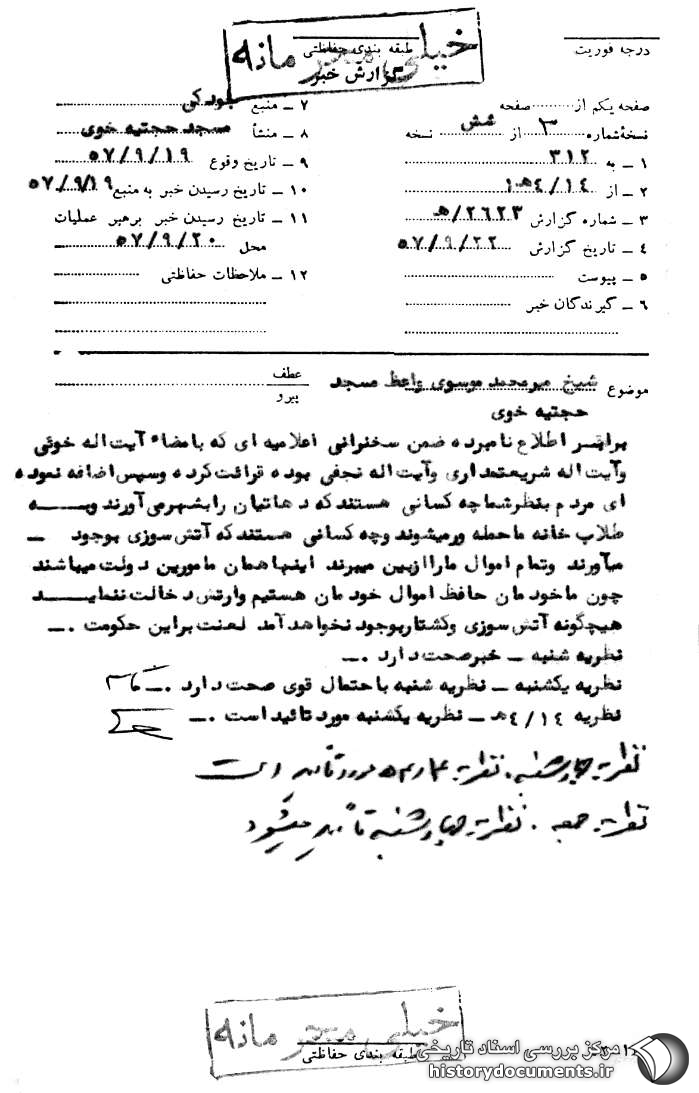 خیلی محرمانه
طبقه بندی حفاظتی
گزارش خبر
درجه فوریت
صفحه یکم از صفحه
نسخهٔ شماره ۳ از شش نسخه
۱ - به ۳۱۲
۲ - از ۴/۱۴هـ۱
۳ - شماره گزارش ۲۶۲۳/هـ
۴ - تاریخ گزارش ۵۷/۹/۲۲
۵ - پیوست
۶ - گیرندگان خبر
۷ - منبع جودکی
۸ - منشأ مسجد حجتیه خوی
۹ - تاریخ وقوع ۵۷/۹/۱۹
۱۰ - تاریخ رسیدن خبر به منبع ۵۷/۹/۱۹
۱۱ - تاریخ رسیدن خبر برهبر عملیات
محل ۵۷/۹/۲۰
۱۲ - ملاحظات حفاظتی
موضوع شیخ میرمحمد موسوی واعظ مسجد
حجتیه خوی
عطف
پیرو
برابر اطلاع نامبرده ضمن سخنرانی اعلامیه ای که بامضاء آیت اله خوئی
وآیت اله شریعتمداری وآیت اله نجفی بوده قرائت کرده وسپس اضافه نموده
ای مردم بنظرشماچه کسانی هستند که دهاتیان رابشهرمی آورند وبـــه
طلاب خانه ماحمله ورمیشوند وچه کسانی هستند که آتش سوزی بوجود -
میآورند وتمام اموال ماراازبین میبرند اینهاهمان مامورین دولت میباشند
چون ماخودمان حافظ اموال خودمان هستیم وارتش دخالت ننمایـــد
هیچگونه آتش سوزی وکشتاربوجود نخواهد آمد لعنت براین حکومت .-
نظریه شنبه - خبرصحت دارد .-
نظریه یکشنبه - نظریه شنبه باحتمال قوی صحت دارد .-
نظریه ۴/۱۴هـ - نظریه یکشنبه مورد تائید است .-
نظریه چهارشنبه . نظریه ۴/۱۴هـ مورد تأیید است
نظریه جمعه . نظریه چهارشنبه تأیید میشود
خیلی محرمانه
طبقه بندی حفاظتی
مرکز بررسی اسناد تاریخی
historydocuments.ir